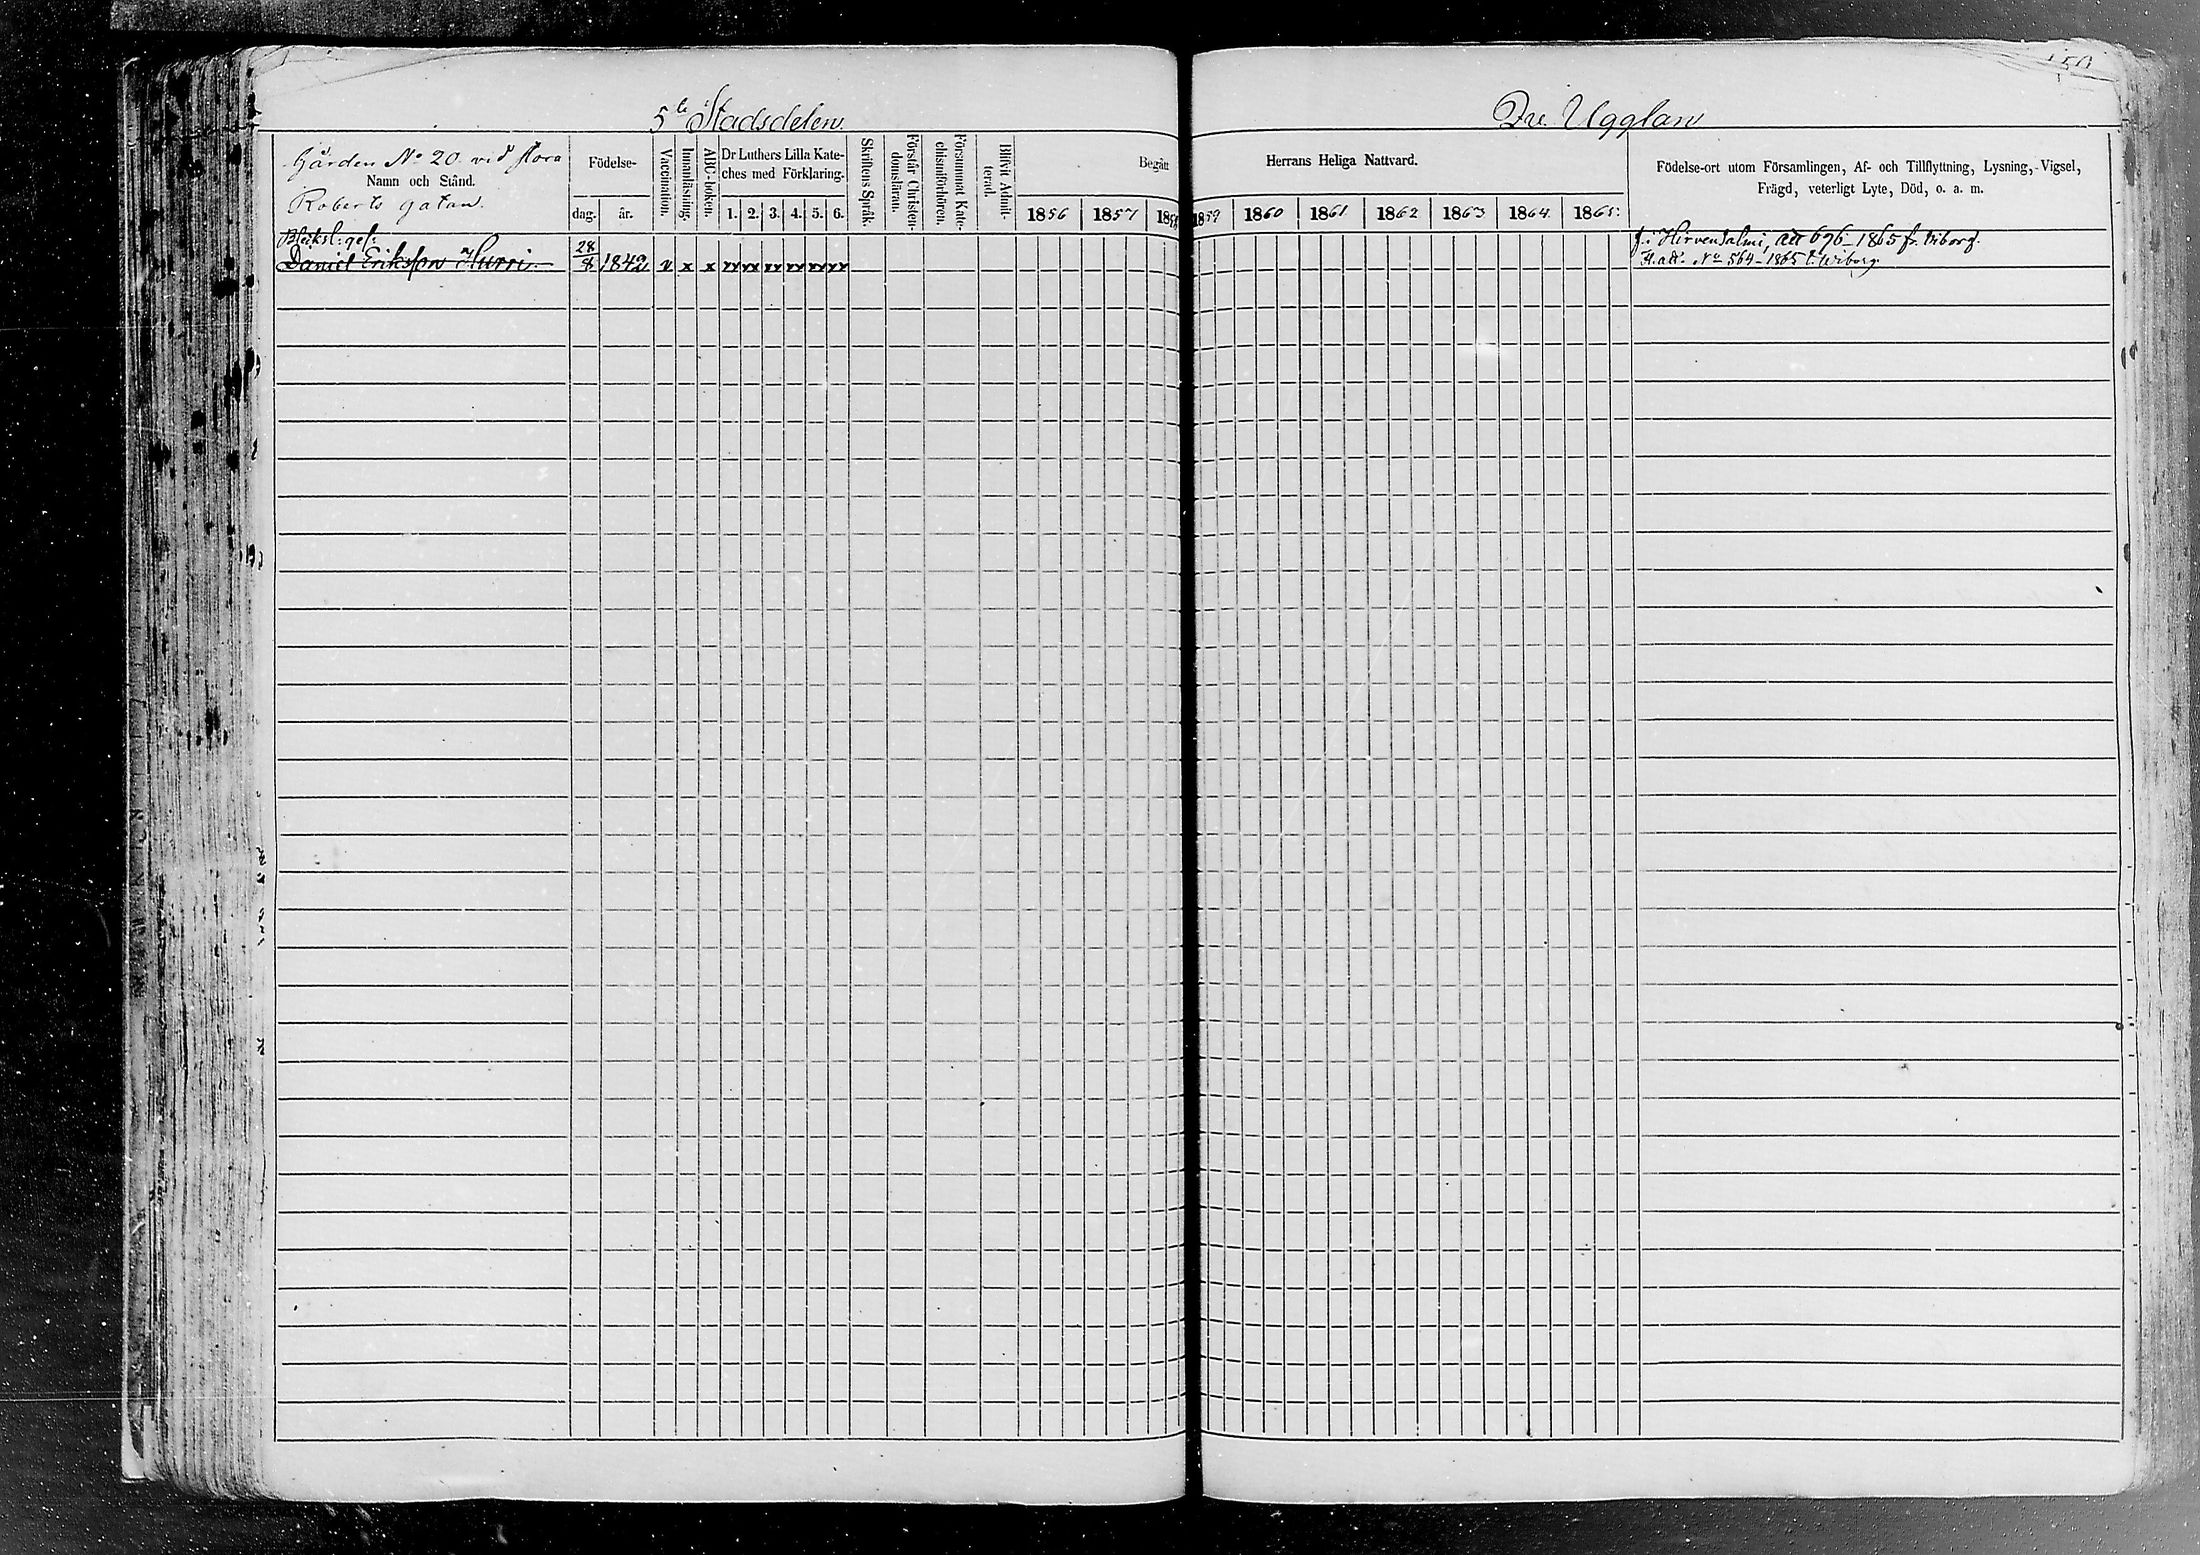 5te Stadsdelen.
Qre Ugglan
Gården No 20 vid stora
Namn och Stånd.
Roberts gatan.
Födelse-
dag. år.
Vaccination.
Innanläsning.
ABC-boken.
Dr Luthers Lilla Kate-
ches med Förklaring.
1. 2. 3. 4. 5. 6.
Skriftens Språk.
Förstår Christen-
domsläran.
Försummat Kate-
chismiförhören.
Blifvit Admit-
terad.
Begått Herrans Heliga Nattvard.
1856 1857 1859 1860 1861 1862 1863 1864 1865
Födelse-ort utom Församlingen, Af- och Tillflyttning, Lysning, Vigsel,
Frägd, veterligt Lyte, Död, o. a. m.
Blecksl: ges:
Daniel Eriksson Hurri 28/8 1842 v x x
f. i Hirvensalmi, att 696-1865 fr. Viborg.
Fl. att. No 564-1865 t. Wiborg.